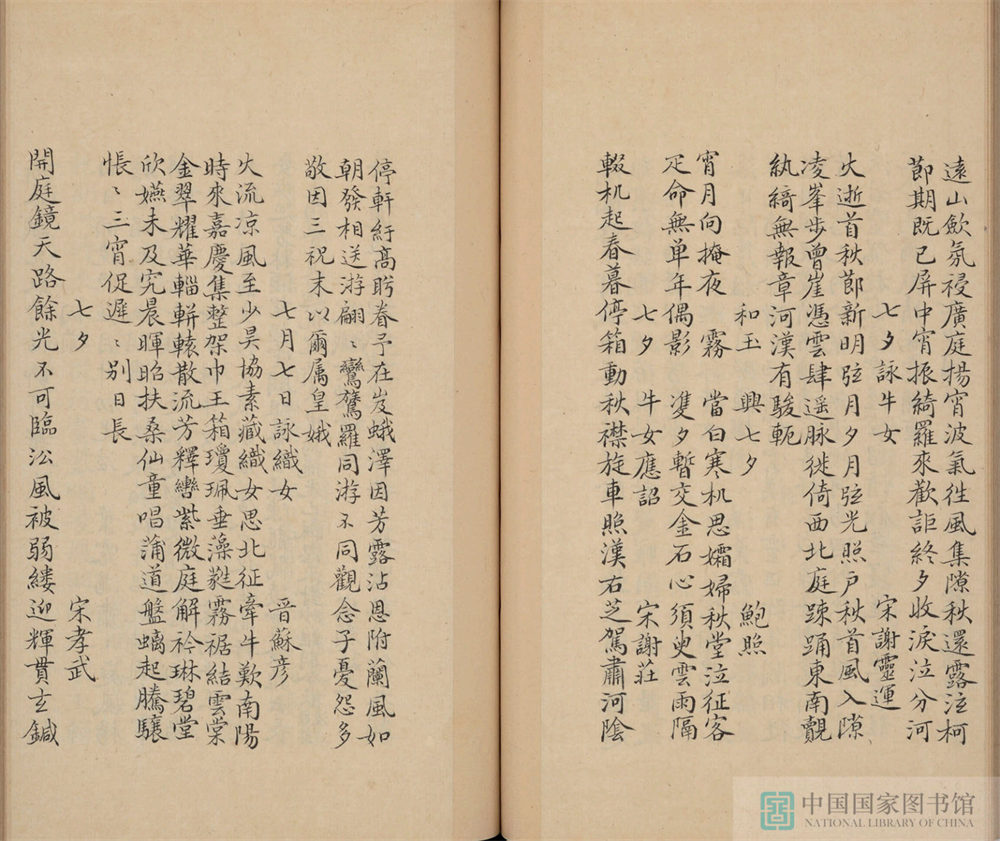 遠山斂氛祲廣庭揚宵波氣徃風集隙秋還露泣柯
節期既已屏中宵振綺羅來歡詎終夕收淚泣分河
七夕詠牛女　宋謝靈運
火逝首秋節新明弦月夕月弦光照戸秋首風入隙
凌峯步曾崖憑雲肆遥脉徙倚西北庭踈踊東南覿
紈綺無報章河漢有駿軛
和王　興七夕　鮑照
宵月向掩夜　霧　當白寒机思孀婦秋堂泣征客
疋命無单年偶影　㕠夕暫交金石心須㬰雲雨隔
七夕　牛女應詔　宋謝莊
輟机起春暮停箱動秋襟旋車照漢右芝駕肅河陰
停軒紆高眄眷予在岌峩澤因芳露沾恩附蘭風如
朝發相送游翩〻鸞鷟羅同游不同觀念子憂怨多
敬因三祝末以爾属皇娥
七月七日詠織女　晉蘇彦
火流凉風至少昊協素藏織女思北征牽牛歎南陽
時來嘉慶集整架巾玉箱瓊珮垂藻蕤霧裾結雲裳
金翠耀華輜軿轅散流芳釋轡紫微庭解衿琳碧堂
欣嬿未及究晨暉照扶桑仙童唱蒲道盤螭起騰驤
悵〻三宵促遲〻别日長
七夕　宋孝武
開庭鏡天路餘光不可臨沿風被弱縷迎輝貫玄鍼
中国国家图书馆
NATIONAL LIBRARY OF CHINA